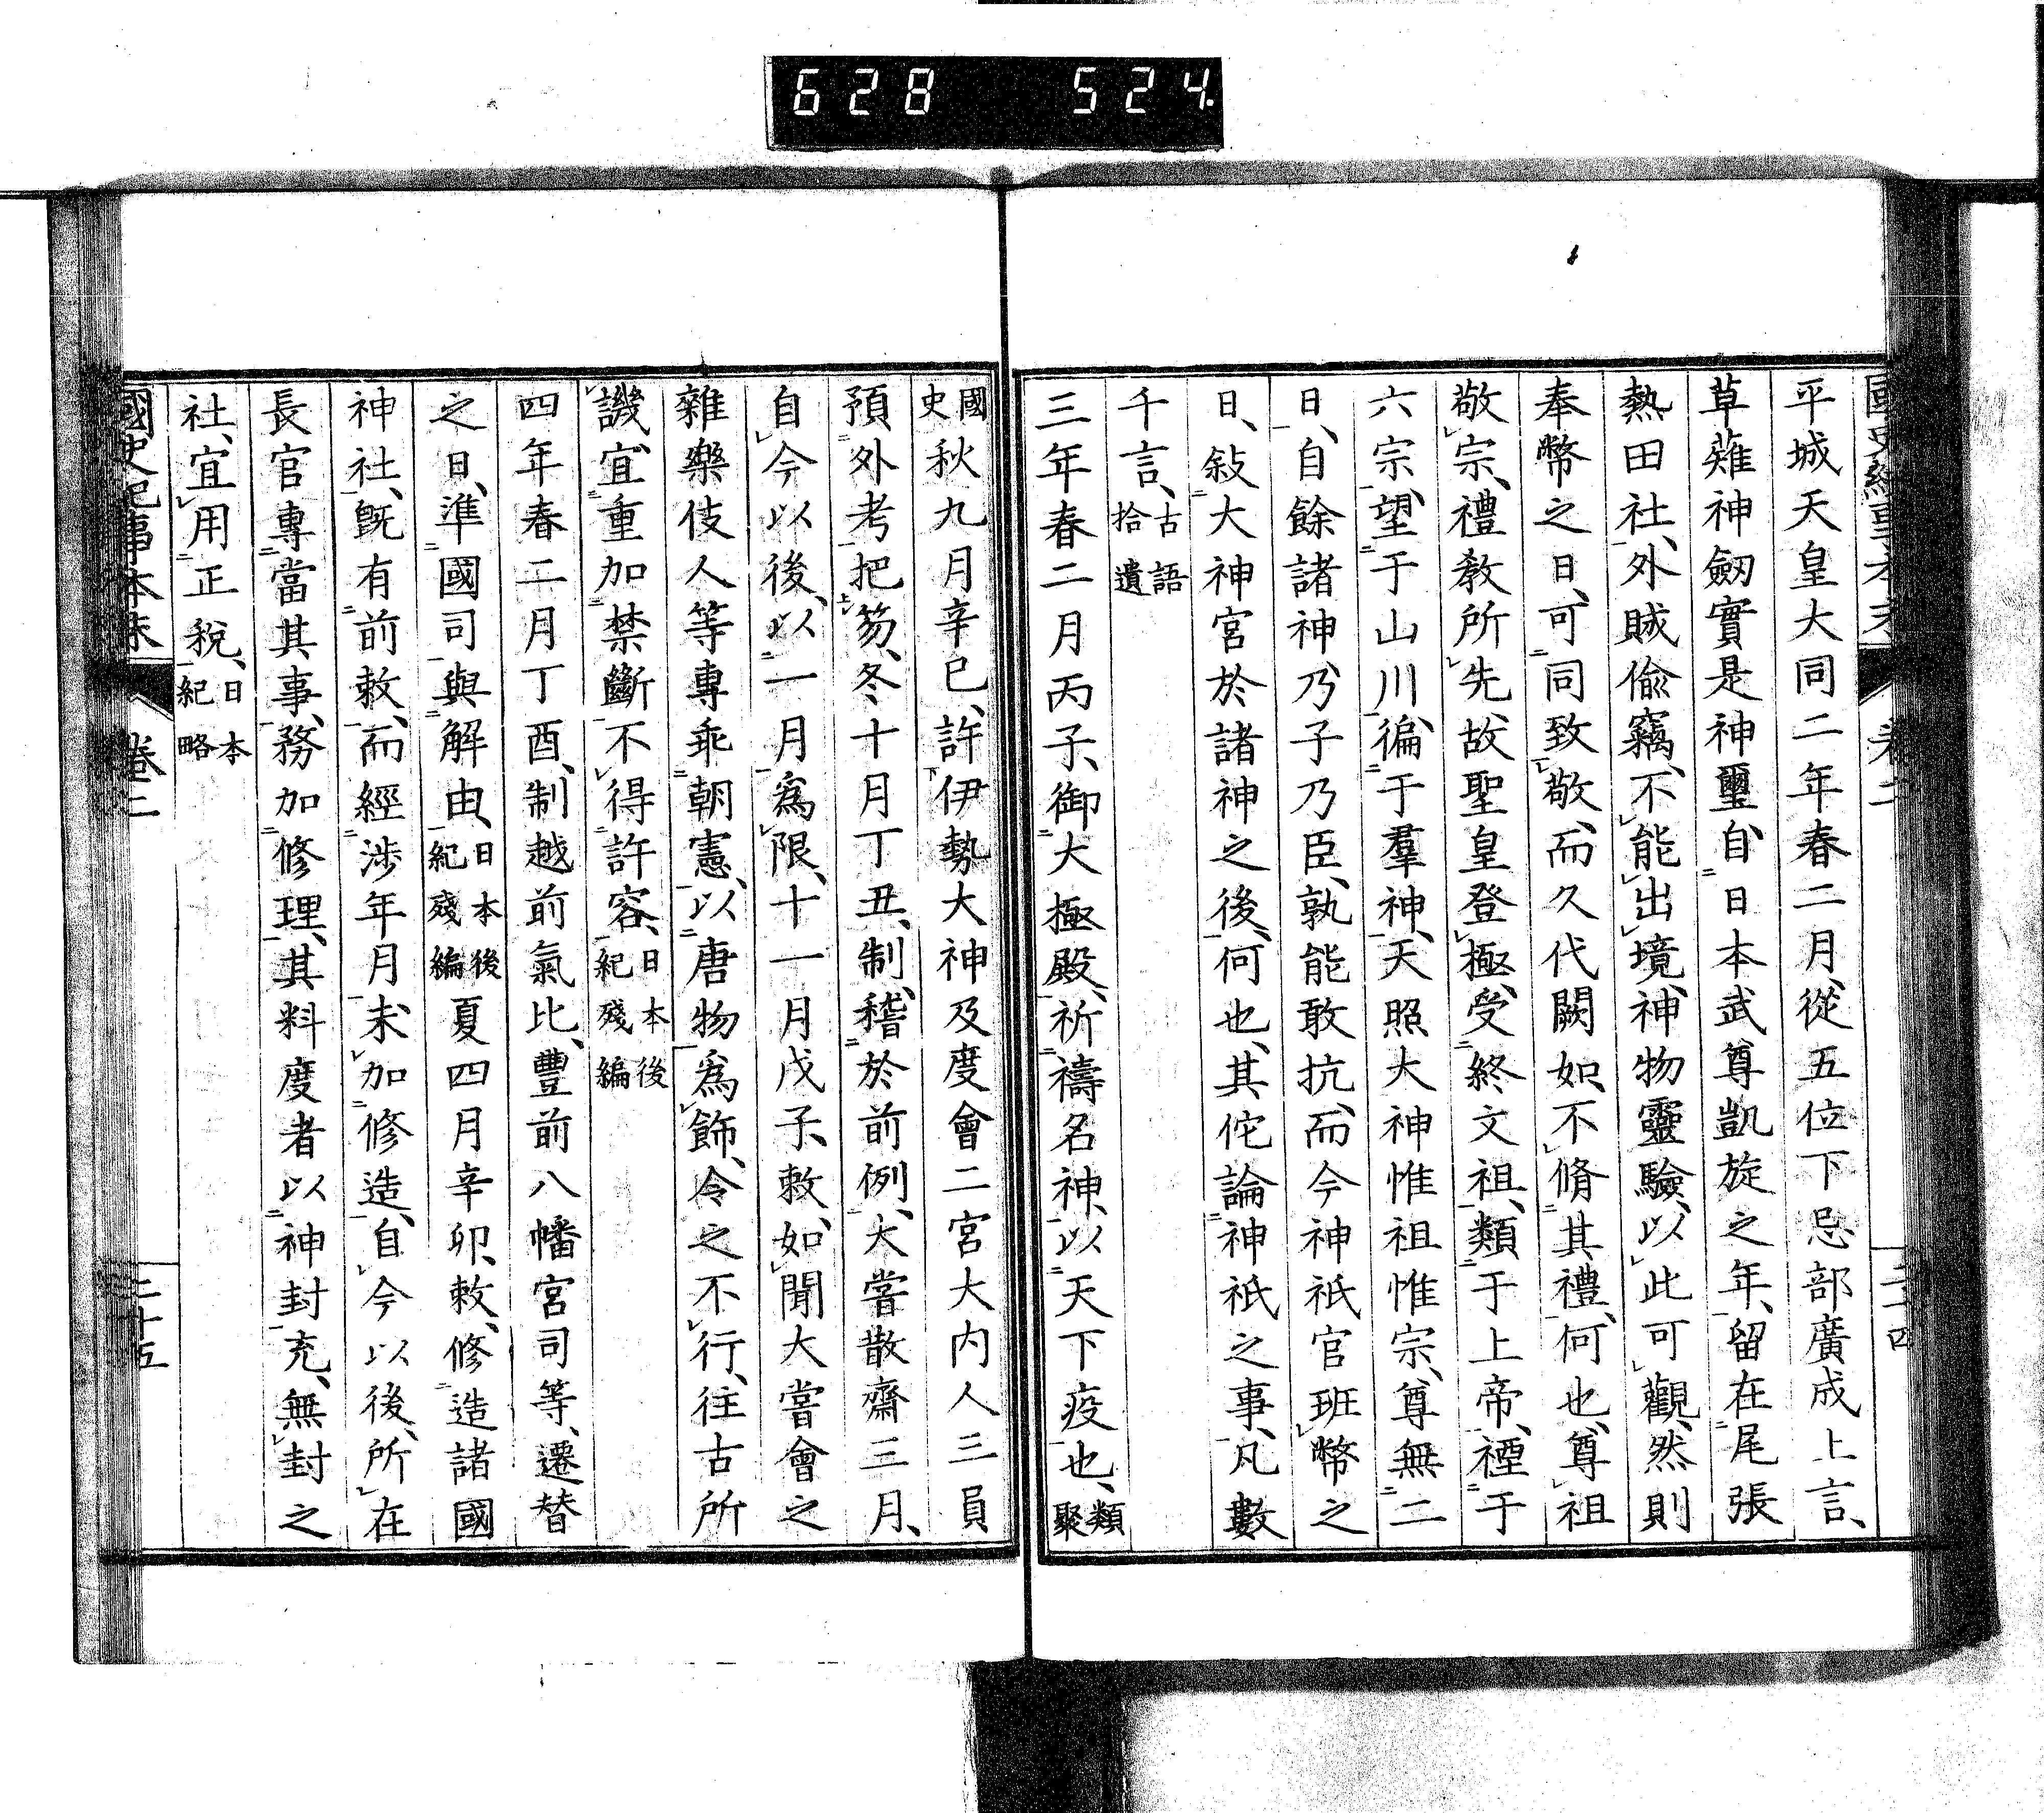 628 524
國史紀事本末 卷二 二十四
平城天皇大同二年春二月、從五位下忌部廣成上言、
草薙神劒實是神璽、自日本武尊凱旋之年、留在尾張
熱田社、外賊偸竊、不能出境、神物靈驗、以此可觀、然則
奉幣之日、可同致敬、而久代闕如、不脩其禮、何也、尊祖
敬宗、禮敎所先、故聖皇登極、受終文祖、類于上帝、禋于
六宗、望于山川、徧于羣神、天照大神惟祖惟宗、尊無二
日、自餘諸神、乃子乃臣、孰能敢抗、而今神祇官班幣之
日、敍大神宮於諸神之後、何也、其佗論神祇之事、凡數
千言、古語拾遺
三年春二月丙子、御大極殿、祈禱名神、以天下疫也、類聚
國史秋九月辛巳、許伊勢大神及度會二宮大内人三員
預外考把笏、冬十月丁丑、制、稽於前例、大嘗散齋三月、
自今以後、以一月爲限、十一月戊子、敕、如聞大嘗會之
雜樂伎人等專乖朝憲、以唐物爲飾、令之不行、往古所
譏、宜重加禁斷、不得許容、日本後紀殘編
四年春二月丁酉、制越前氣比、豐前八幡宮司等、遷替
之日、準國司與解由、日本後紀殘編夏四月辛卯、敕、修造諸國
神社、旣有前敕、而經涉年月、未加修造、自今以後、所在
長官專當其事、務加修理、其料度者以神封充、無封之
社、宜用正稅、日本紀略
國史紀事本末 卷二 二十五